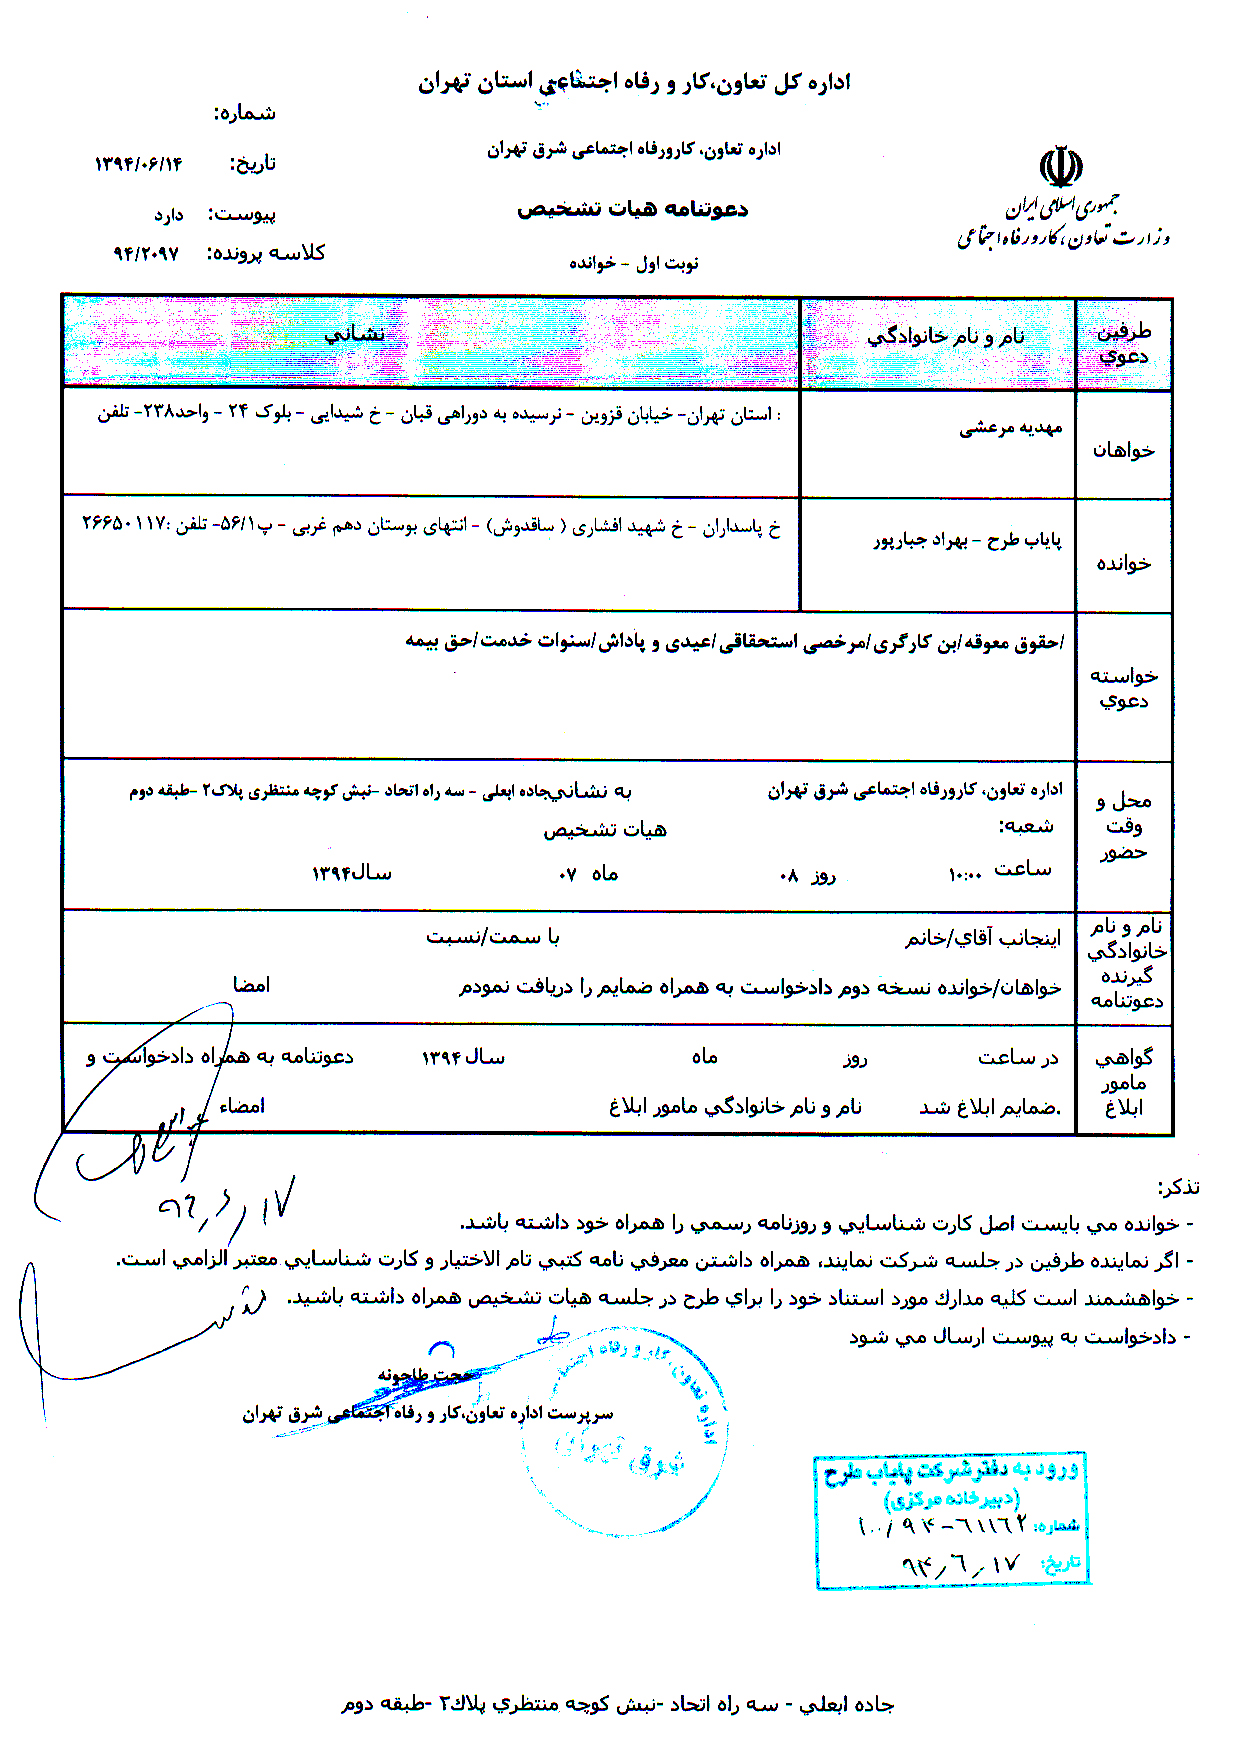 اداره كل تعاون،كار و رفاه اجتماعي استان تهران
شماره:
اداره تعاون، كارورفاه اجتماعی شرق تهران
تاريخ: ۱۳۹۴/۰۶/۱۴
جمهوری اسلامی ایران
وزارت تعاون، کار و رفاه اجتماعی
دعوتنامه هيات تشخيص
پيوست: دارد
كلاسه پرونده: ۹۴/۲۰۹۷
نوبت اول - خوانده
طرفين دعوي
نام و نام خانوادگي
نشاني
خواهان
مهدیه مرعشی
: استان تهران- خیابان قزوین - نرسیده به دوراهی قپان - خ شیدایی - بلوک ۲۴ - واحد۲۳۸- تلفن
خوانده
پایاب طرح - بهراد جبارپور
خ پاسداران - خ شهید افشاری ( ساقدوش) - انتهای بوستان دهم غربی - پ۵۶/۱- تلفن :۲۶۶۵۰۱۱۷
خواسته دعوي
/حقوق معوقه/بن کارگری/مرخصی استحقاقی/عیدی و پاداش/سنوات خدمت/حق بیمه
محل و وقت حضور
اداره تعاون، كارورفاه اجتماعی شرق تهران به نشاني جاده ابعلی - سه راه اتحاد -نبش کوچه منتظری پلاک۲ -طبقه دوم
شعبه: هيات تشخيص
ساعت ۱۰:۰۰ روز ۰۸ ماه ۰۷ سال۱۳۹۴
نام و نام خانوادگي گيرنده دعوتنامه
اينجانب آقاي/خانم با سمت/نسبت
خواهان/خوانده نسخه دوم دادخواست به همراه ضمايم را دريافت نمودم امضا
گواهي مامور ابلاغ
در ساعت روز ماه سال ۱۳۹۴ دعوتنامه به همراه دادخواست و
.ضمايم ابلاغ شد نام و نام خانوادگي مامور ابلاغ امضاء
تذكر:
- خوانده مي بايست اصل كارت شناسايي و روزنامه رسمي را همراه خود داشته باشد.
- اگر نماينده طرفين در جلسه شركت نمايند، همراه داشتن معرفي نامه كتبي تام الاختيار و كارت شناسايي معتبر الزامي است.
- خواهشمند است كليه مدارك مورد استناد خود را براي طرح در جلسه هيات تشخيص همراه داشته باشيد.
- دادخواست به پيوست ارسال مي شود
حجت طاحونه
سرپرست اداره تعاون،کار و رفاه اجتماعی شرق تهران
اداره تعاون، کار و رفاه اجتماعی
شرق تهران
ورود به دفتر شرکت پایاب طرح
(دبیرخانه مرکزی)
شماره: ۱۰۰/۹۴-۶۱۱۶۲
تاریخ: ۹۴/۶/۱۷
جاده ابعلي - سه راه اتحاد -نبش كوچه منتظري پلاك۲ -طبقه دوم